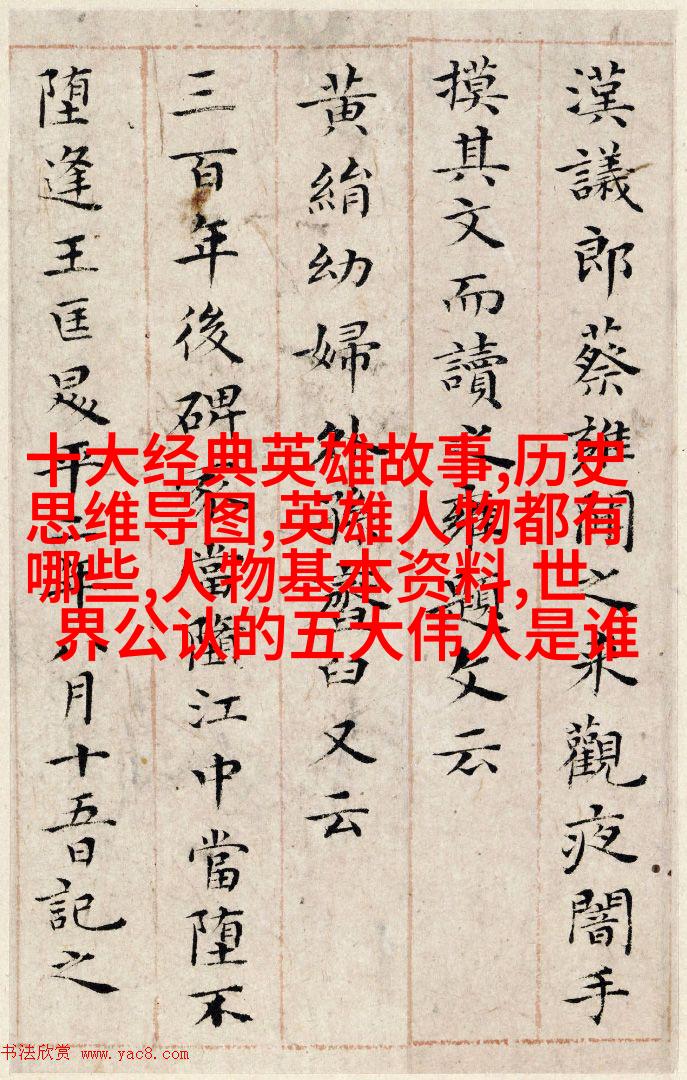 漢議郎蔡雍聞之来觀夜闇手
摸其文而讀之雍題文云
黄絹幼婦外孫韲臼又云
三百年後碑冢當墮江中當堕不
堕逢王匡昇平二年八月十五日記之
十大经典英雄故事,历史
思维导图,英雄人物都有
哪些,人物基本资料,世
界公认的五大伟人是谁
书法欣赏 www.yac8.com